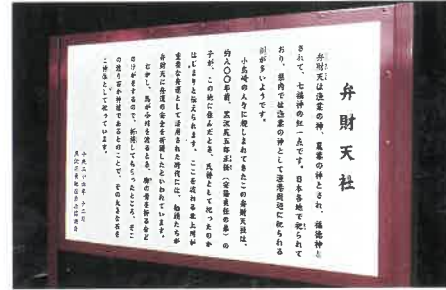 弁財天社
弁財天は漁業の神、農業の神とされ、福徳神と
されて、七福神の紅一点です。日本各地で祀られて
おり、県内では漁業の神として漁港周辺に祀られる
例が多いようです。
小鳥崎の人々に親しまれてきたこの弁財天社は、
約八〇〇年前、黒沢尻五郎正任（安倍貞任の弟）の
子が、この地に住んだとき、氏神として祀ったのが
はじまりと伝えられます。ここを流れる北上川が
重要な舟運として活用された時代には、船頭たちが
弁財天に舟運の安全を祈願したといわれています。
むかし、馬が小川を渡るとき、脚の骨を折るなど
のけがをするので、祈祷してもらったところ、そこ
の渡り石が神様であるとのことで、その大きな石を
ご神体として祀っています。